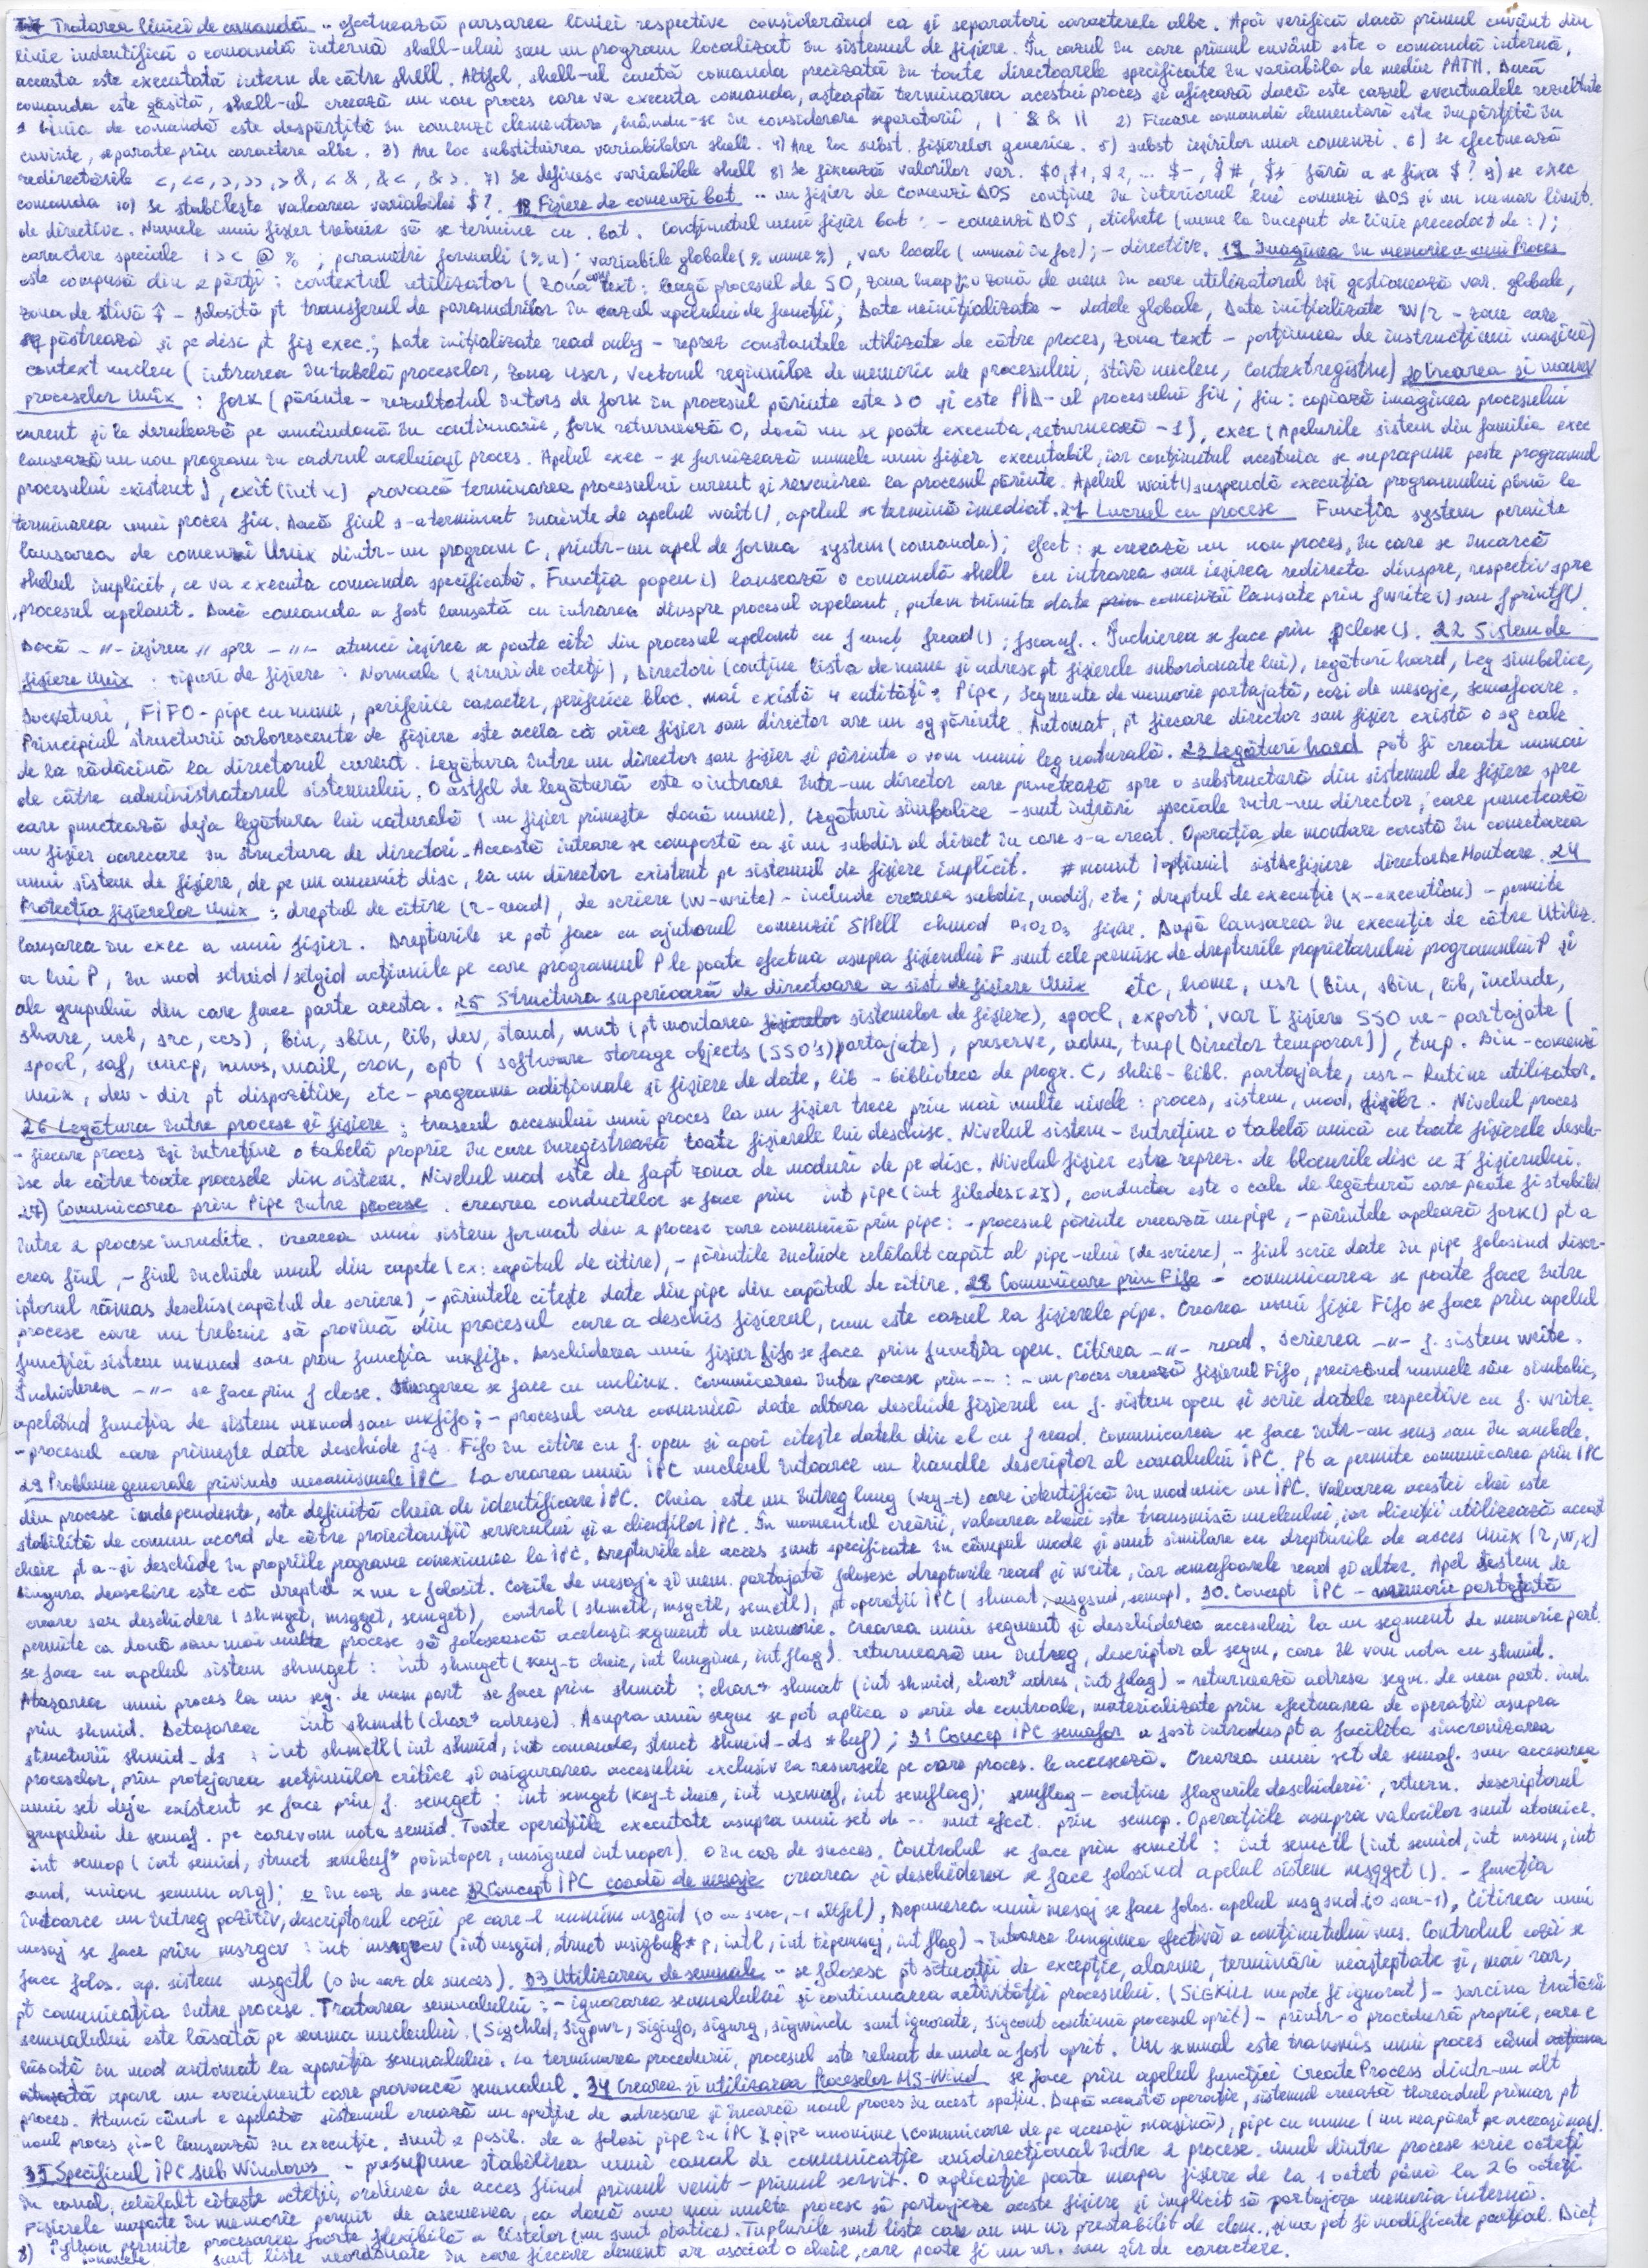 17 Tratarea liniei de comandă .. efectuează parsarea liniei respective considerând ca și separatori caracterele albe. Apoi verifică dacă primul cuvânt din
linie indentifică o comandă internă shell-ului sau un program localizat în sistemul de fișiere. În cazul în care primul cuvânt este o comandă internă,
aceasta este executată intern de către shell. Altfel, shell-ul caută comanda precizată în toate directoarele specificate în variabila de mediu PATH. Dacă
comanda este găsită, shell-ul crează un nou proces care va executa comanda, așteaptă terminarea acestui proces și afișează dacă este cazul eventualele rezultate
1 Linia de comandă este despărțită în comenzi elementare, luându-se în considerare separatorii , | && || 2) Fiecare comandă elementară este împărțită în
cuvinte, separate prin caractere albe. 3) Are loc substituirea variabilelor shell. 4) Are loc subst. fișierelor generice. 5) subst ieșirilor unor comenzi. 6) se efectuează
redirectările <, <<, >, >>, >&, <&, &<, &>. 7) Se definesc variabilele shell 8) Se fixează valorilor var. $0, $1, $2, ... $-, $#, $* fără a se fixa $? 9) se exec
comanda 10) Se stabilește valoarea variabilei $?. 18 Fișiere de comenzi bat .. un fișier de comenzi DOS conține în interiorul lui comenzi DOS și un numar limit.
de directive. Numele unui fișier trebuie să se termine cu .bat. Conținutul unui fișier bat : - comenzi DOS, etichete (nume la început de linie precedat de :);
caractere speciale | > < @ % ; parametri formali (%n); variabile globale (% nume %), var locale (numai în for); - directive. 19 Imaginea în memorie a unui Proces
este compusă din 2 părți : contextul utilizator (zona text: leagă procesul de SO, zona heap : o zonă de mem în care utilizatorul își gestionează var. globale,
zona de stivă - folosită pt transferul de parametrilor în cazul apelului de funcții; Date neinițializate - datele globale, Date inițializate W/r - zone care
se păstrează și pe disc pt fiș exec.; Date inițializate read only - reprez constantele utilizate de către proces, zona text - porțiunea de instrucțiuni mașină)
context nucleu (intrarea în tabela proceselor, zona user, vectorul regiunilor de memorie ale procesului, stivă nucleu, context registru) 20 Crearea și
proceselor Unix : fork (părinte - rezultatul întors de fork în procesul părinte este >0 și este PID-ul procesului fiu; fiu: copiază imaginea procesului
curent și le derulează pe amândouă în continuarie, fork returnează 0, dacă nu se poate executa, returnează -1), exec (Apelurile sistem din familia exec
lansează un nou program în cadrul aceluiași proces. Apelul exec - se furnizează numele unui fișier executabil, iar conținutul acestuia se suprapune peste programul
procesului existent), exit(int n) provoacă terminarea procesului curent și revenirea la procesul părinte. Apelul wait() suspendă execuția programului până la
terminarea unui proces fiu. Dacă fiul s-a terminat înainte de apelul wait(), apelul se termină imediat. 21 Lucrul cu procese Funcția system permite
lansarea de comenzi Unix dintr-un program C, printr-un apel de forma system(comanda); efect: se crează un nou proces, în care se încarcă
shelul implicit, ce va executa comanda specificată. Funcția popen() lansează o comandă shell cu intrarea sau ieșirea redirecta dinspre, respectiv spre
procesul apelant. Dacă comanda a fost lansată cu intrarea dinspre procesul apelant, putem trimite date comenzii lansate prin fwrite() sau fprintf()
Dacă -"- ieșirea " spre -"- atunci ieșirea se poate citi din procesul apelant cu funcț fread(); fscanf.. Închierea se face prin pclose(). 22 Sistem de
fișiere Unix : tipuri de fișiere : Normale (șiruri de octeți), Directori (conține lista de nume și adrese pt fișierele subordonate lui), Legături hard, Leg simbolice,
Socketuri, FIFO-pipe cu nume, periferice caracter, periferice bloc. Mai există 4 entități: Pipe, Segmente de memorie partajată, cozi de mesaje, semafoare.
Principiul structurii arborescente de fișiere este acela că orice fișier sau director are un sg părinte. Automat, pt fiecare director sau fișier există o sg cale
de la rădăcină la directorul curent. Legătura între un director sau fișier și părinte o vom numi leg naturală. 23 Legături hard pot fi create numai
de către administratorul sistemului. O astfel de legătură este o intrare într-un director care punctează spre o substructură din sistemul de fișiere spre
care punctează deja legătura lui naturală (un fișier primește două nume). Legături simbolice - sunt intrări speciale într-un director, care punctează
un fișier oarecare în structura de directori. Această intrare se comportă ca și un subdir al direct în care s-a creat. Operația de montare constă în conectarea
unui sistem de fișiere, de pe un anumit disc, la un director existent pe sistemul de fișiere implicit. #mount [opțiuni] sistDefișiere directorDeMontare. 24
Protecția fișierelor Unix : dreptul de citire (r-read), de scriere (w-write) - include crearea subdir, modif, etc; dreptul de execuție (x-execution) - permite
lansarea în exec a unui fișier. Drepturile se pot face cu ajutorul comenzii SHell chmod fișier. După lansarea în execuție de către Utiliz.
a lui P, în mod setuid/setgid acțiunile pe care programul P le poate efectua asupra fișierului F sunt cele permise de drepturile proprietarului programului P și
ale grupului din care face parte acesta. 25 Structura superioară de directoare a sist de fișiere Unix etc, home, usr (bin, sbin, lib, include,
share, ucb, src, ccs), bin, sbin, lib, dev, stand, mnt (pt montarea sistemelor de fișiere), spool, export, var [fișiere SSO ne-partajate (
spool, saf, uucp, news, mail, cron, opt (software storage objects (SSO's) partajate), preserve, adm, tmp (Director temporar)], tmp. Bin-comenzi
unix, dev-dir pt dispozitive, etc-programe adiționale și fișiere de date, lib-biblioteca de progr. C, shlib-bibl. partajate, usr-Rutine utilizator.
26 Legătura între procese și fișiere : traseul accesului unui proces la un fișier trece prin mai multe nivele: proces, sistem, inod, fișier. Nivelul proces
- fiecare proces își întreține o tabelă proprie în care înregistrează toate fișierele lui deschise. Nivelul sistem - întreține o tabelă unică cu toate fișierele desch-
ise de către toate procesele din sistem. Nivelul inod este de fapt zona de inoduri de pe disc. Nivelul fișier este reprez. de blocurile disc ce fișierului.
27) Comunicarea prin Pipe între procese . crearea conductelor se face prin int pipe(int filedes[2]), conducta este o cale de legătură care poate fi stabilită
între 2 procese înrudite. Crearea unui sistem format din 2 procese care comunică prin pipe: - procesul părinte crează un pipe, - părintele apelează fork() pt a
crea fiul, - fiul închide unul din capete (ex: capătul de citire), - părintele închide celălalt capăt al pipe-ului (de scriere), - fiul scrie date în pipe folosind descr-
iptorul rămas deschis (capătul de scriere), - părintele citește date din pipe din capătul de citire. 28 Comunicare prin Fifo - comunicarea se poate face între
procese care nu trebuie să provină din procesul care a deschis fișierul, cum este cazul la fișierele pipe. Crearea unui fișie Fifo se face prin apelul
funcției sistem mknod sau prin funcția mkfifo. Deschiderea unui fișier fifo se face prin funcția open. Citirea -"- read. Scrierea -"- f. sistem write.
Închiderea -"- se face prin f close. Ștergerea se face cu unlink. Comunicarea între procese prin -- : - un proces crează fișierul Fifo, precizând numele său simbolic,
apelând funcția de sistem mknod sau mkfifo; - procesul care comunică date altora deschide fișierul cu f. sistem open și scrie datele respective cu f. write.
- procesul care primește date deschide fiș. Fifo în citire cu f. open și apoi citește datele din el cu f read. Comunicarea se face într-un sens sau în ambele.
29 Probleme generale privind mecanismele IPC La crearea unui IPC nucleul întoarce un handle descriptor al canalului IPC. Pt a permite comunicarea prin IPC
din procese independente, este definită cheia de identificare IPC. Cheia este un întreg lung (key-t) care identifică în mod unic un IPC. Valoarea acestei chei este
stabilită de comun acord de către proiectanții serverului și a clienților IPC. În momentul creării, valoarea cheii este transmisă nucleului, iar clienții utilizează această
cheie pt a-și deschide în propriile pograme conexiunea la IPC. Drepturile de acces sunt specificate în câmpul mode și sunt similare cu drepturile de acces Unix (r, w, x)
singura deosebire este că dreptul x nu e folosit. Cozile de mesaje și mem. partajată folosesc drepturile read și write, iar semafoarele read și alter. Apel sistem de
creare sau deschidere (shmget, msgget, semget), control (shmctl, msgctl, semctl), pt operații IPC (shmat, msgsnd, semop). 30. Concept IPC - memorie partajată
permite ca două sau mai multe procese să folosească același segment de memorie. Crearea unui segment și deschiderea accesului la un segment de memorie part.
se face cu apelul sistem shmget : int shmget(key-t cheie, int lungime, int flag). returnează un întreg, descriptor al segm, care îl vom nota cu shmid.
Atașarea unui proces la un seg. de mem part se face prin shmat : char* shmat (int shmid, char* adres, int flag) - returnează adresa segm. de mem part. ind.
prin shmid. Detașarea int shmdt(char* adresa). Asupra unui segm se pot aplica o serie de controale, materializate prin efectuarea de operații asupra
structurii shmid_ds : int shmctl(int shmid, int comanda, struct shmid_ds *buf); 31 Concep IPC semafor a fost introdus pt a facilita sincronizarea
proceselor, prin protejarea secțiunilor critice și asigurarea accesului exclusiv la resursele pe care proces. le accesează. Crearea unui set de semaf. sau accesarea
unui set deja existent se face prin f. semget : int semget(key-t cheie, int nsemaf, int semflag); semflag - conține flagurile deschiderii, return. descriptorul
grupului de semaf. pe care vom nota semid. Toate operațiile executate asupra unui set de -- sunt efect. prin semop. Operațiile asupra valorilor sunt atomice.
int semop(int semid, struct sembuf* pointoper, unsigned int noper). 0 în caz de succes. Controlul se face prin semctl : int semctl(int semid, int nrsem, int
cmd, union semun arg); 0 în caz de succ 32 Concept IPC coadă de mesaje crearea și deschiderea se face folosind apelul sistem msgget(). - funcția
întoarce un întreg pozitiv, descriptorul cozii pe care-l numim msgid (0 cu succ, -1 altfel), Depunerea unui mesaj se face folos. apelul msgsnd (0 sau -1), Citirea unui
mesaj se face prin msrgcv : int msgrcv (int msgid, struct msgbuf* p, int l, int tipmesaj, int flag) - întoarce lungimea efectivă a conținutului mes. Controlul cozii se
face folos. ap. sistem msgctl (0 în caz de succes). 33 Utilizarea de semnale - se folosesc pt situații de excepție, alarme, terminări neașteptate și, mai rar,
pt comunicația între procese. Tratarea semnalului : - ignorarea semnalului și continuarea activității procesului. (SIGKILL nu pote fi ignorat) - sarcina tratării
semnalului este lăsată pe seama nucleului. (Sigchld, Sigpwr, Siginfo, sigurg, sigwinch sunt ignorate, sigcont continuă procesul oprit) - printr-o procedură proprie, care e
lansată în mod automat la apariția semnalului. La terminarea procedurii, procesul este reluat de unde a fost oprit. Un semnal este transmis unui proces când
apare un eveniment care provoacă semnalul. 34 Crearea și utilizarea Proceselor MS-Wind se face prin apelul funcției Create Process dintr-un alt
proces. Atunci când e apelată sistemul crează un spațiu de adresare și încarcă noul proces în acest spațiu. După această operație, sistemul crează threadul primar pt
noul proces și-l lansează în execuție. Sunt 2 posib. de a folosi pipe în IPC : pipe anonime (comunicare de pe aceeași mașină), pipe cu nume (nu neapărat pe aceeași maș).
35 Specificul IPC sub Windows - presupune stabilirea unui canal de comunicație unidirecțional între 2 procese. Unul dintre procese scrie octeți
în canal, celălalt citește octeții, ordinea de acces fiind primul venit - primul servit. O aplicație poate mapa fișiere de la 1 octet până la 26 octeți
Fișierele mapate în memorie permit de asemenea, ca două sau mai multe procese să partajeze aceste fișiere și implicit să partajeze memoria internă.
8) Python permite procesarea foarte flexibilă a listelor (nu sunt statice). Tuplurile sunt liste care au un nr prestabilit de elem., și nu pot fi modificate parțial. Dicț
sunt liste neordonate în care fiecare element are asociat o cheie, care poate fi un nr. sau șir de caractere.